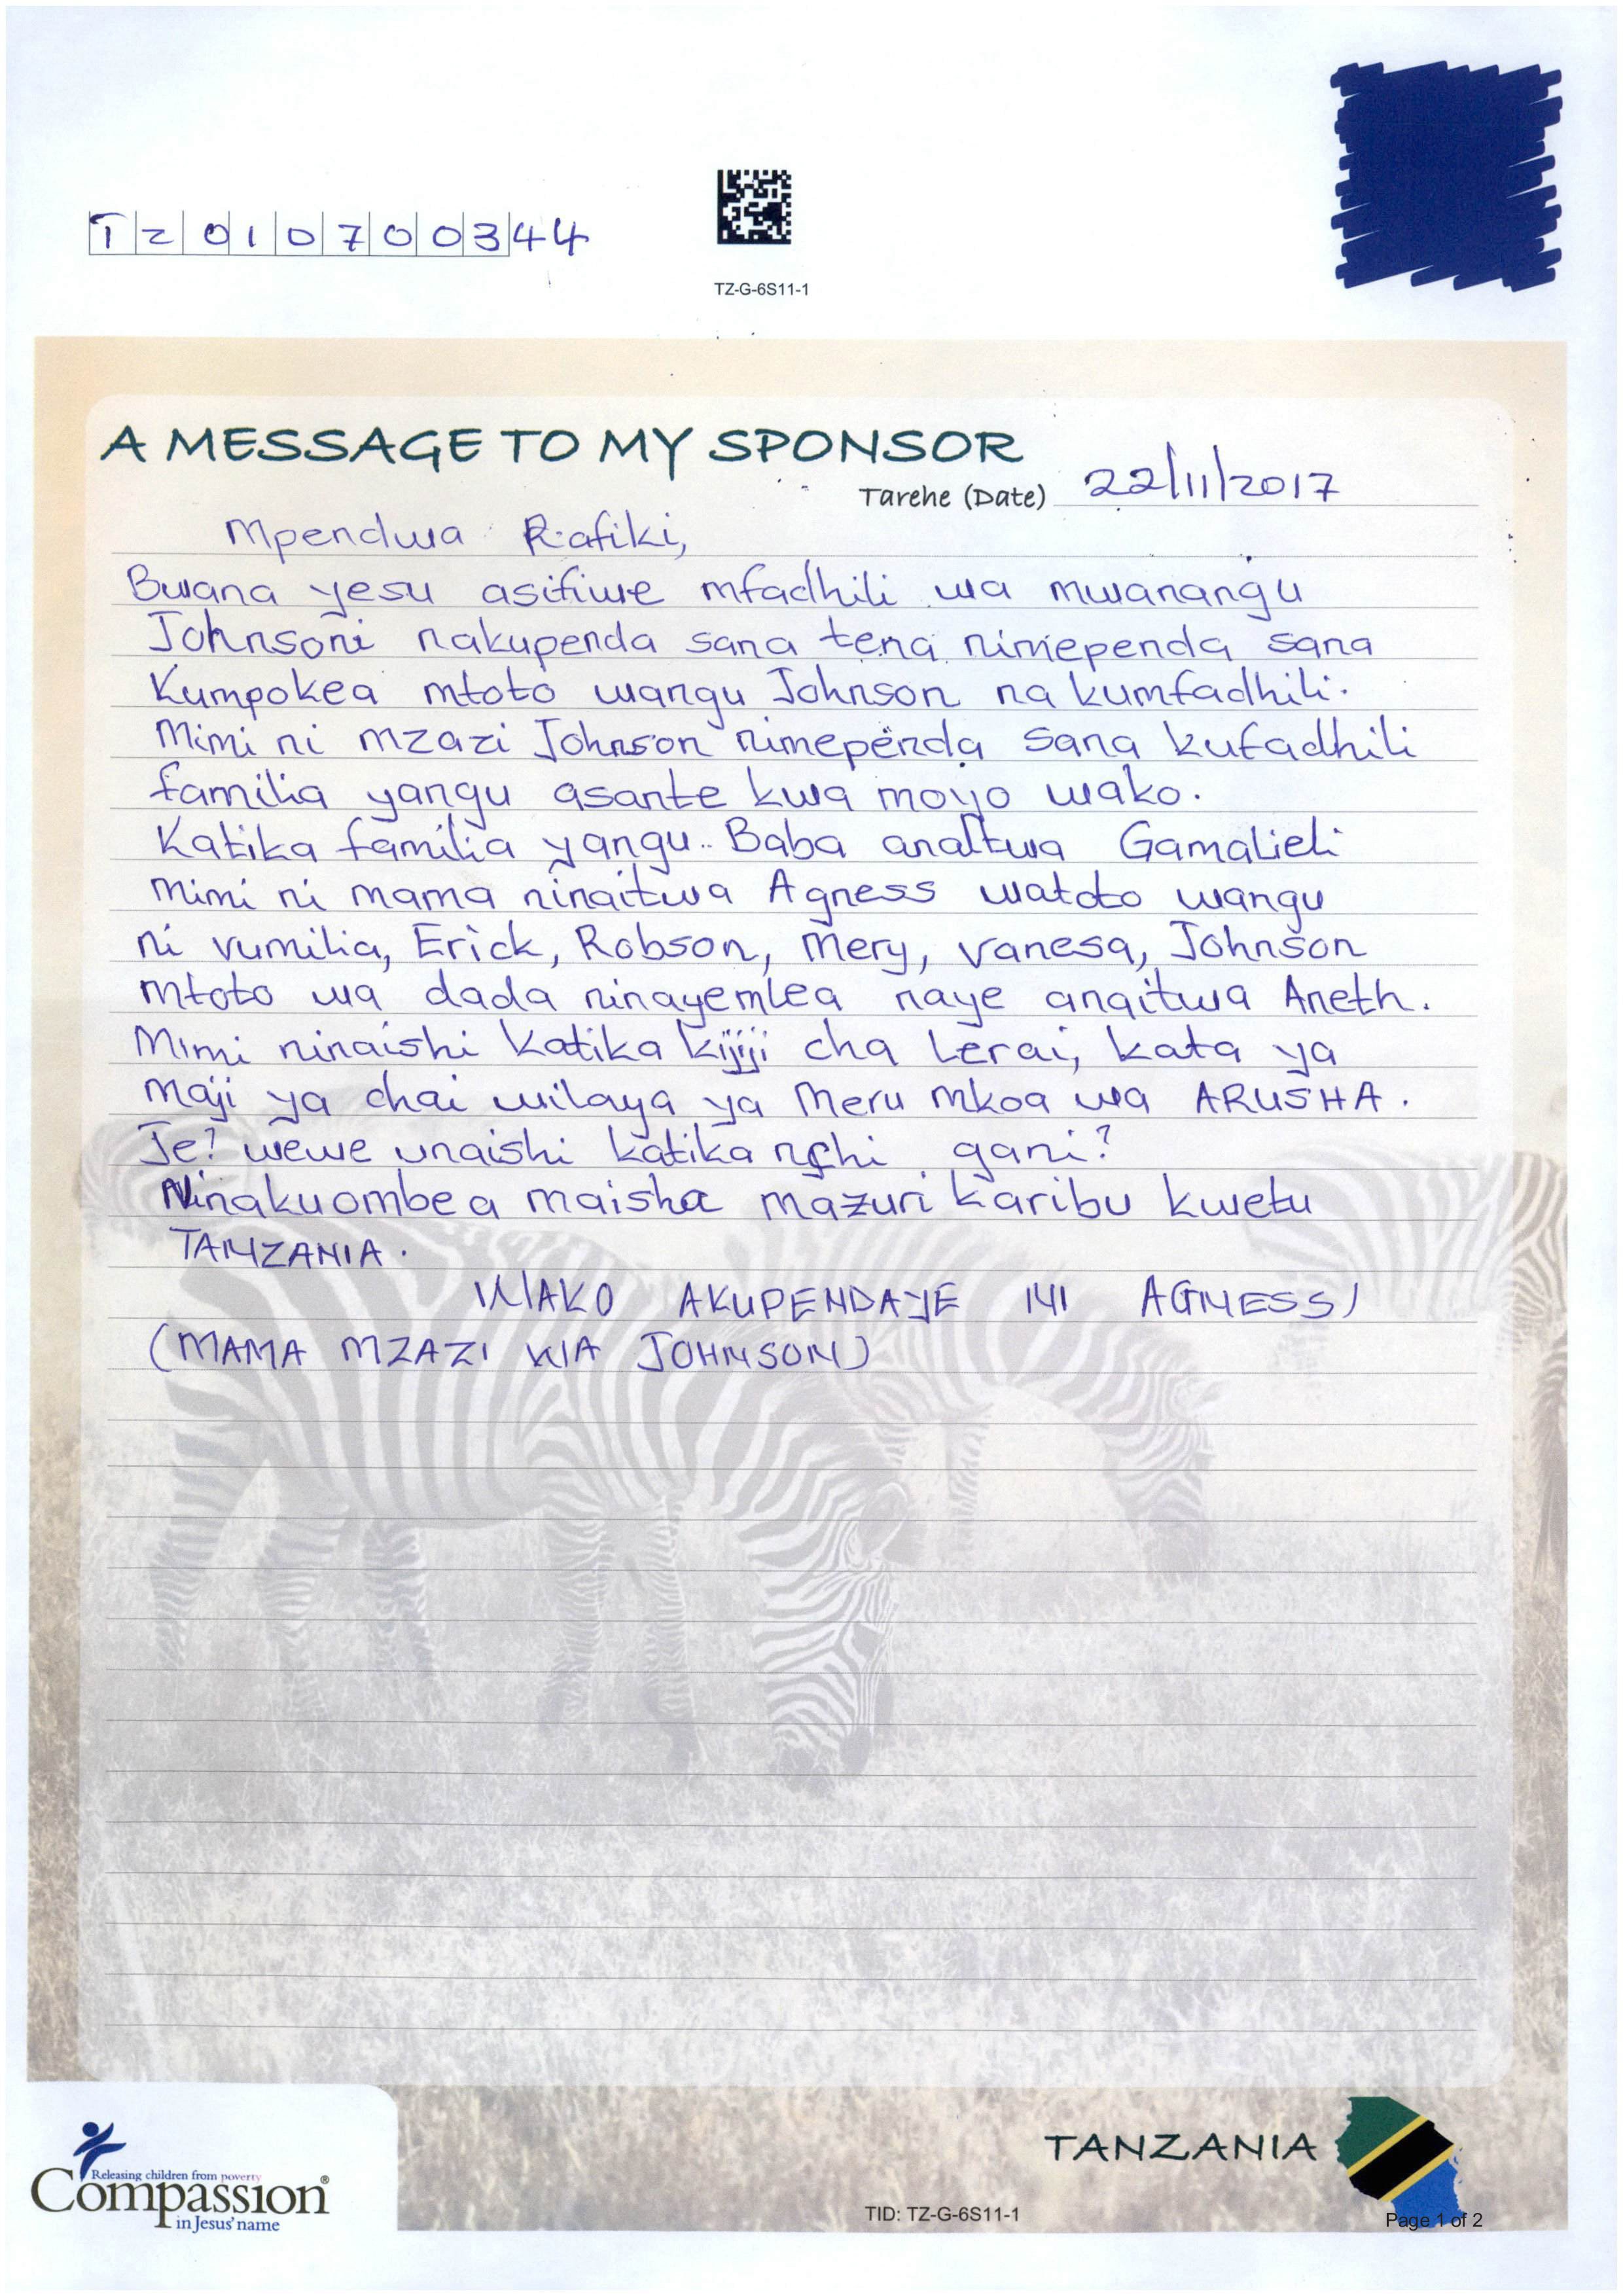 TZ010700344
TZ-G-6S11-1
A MESSAGE TO MY SPONSOR
Tarehe (Date) 22/11/2017
Mpendwa Rafiki,
Bwana yesu asifiwe mfadhili wa mwanangu
Johnsoni nakupenda sana tena nimependa sana
Kumpokea mtoto wangu Johnson na kumfadhili.
Mimi ni mzazi Johnson nimependa sana kufadhili
familia yangu asante kwa moyo wako.
Katika familia yangu.. Baba anaitwa Gamalieli
Mimi ni mama ninaitwa Agness watoto wangu
ni vumilia, Erick, Robson, Mery, vanesa, Johnson
Mtoto wa dada ninayemlea naye anaitwa Aneth.
Mimi ninaishi katika kijiji cha Lerai, kata ya
Maji ya chai wilaya ya Meru mkoa wa ARUSHA.
Je? wewe unaishi katika nchi gani?
Ninakuombea maisha mazuri karibu kwetu
TANZANIA.
WAKO AKUPENDAYE NI AGNESS
(MAMA MZAZI WA JOHNSON)
Releasing children from poverty
Compassion®
in Jesus' name
TANZANIA
TID: TZ-G-6S11-1
Page 1 of 2